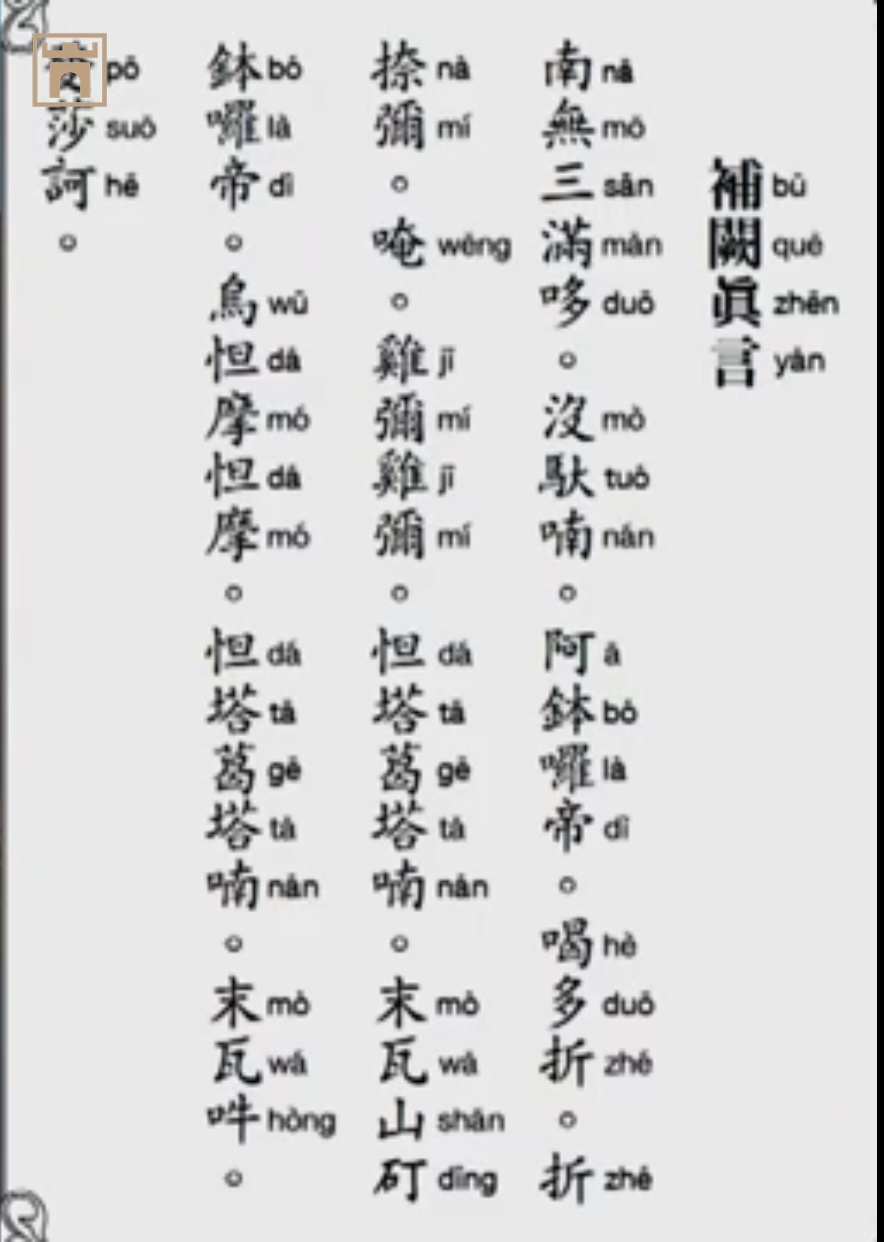 補 bǔ 闕 quē 眞 zhēn 言 yán
南 nā 無 mó 三 sān 滿 mǎn 哆 duō 。 沒 mò 馱 tuó 喃 nán 。 阿 ā 鉢 bó 囉 là 帝 dì 。 喝 hè 多 duō 折 zhé 。 折 zhé
捺 nà 彌 mí 。 唵 wēng 。 雞 jī 彌 mí 雞 jī 彌 mí 。 怛 dá 塔 tǎ 葛 gě 塔 tǎ 喃 nán 。 末 mò 瓦 wǎ 山 shān 矴 dīng
鉢 bó 囉 là 帝 dì 。 烏 wū 怛 dá 摩 mó 怛 dá 摩 mó 。 怛 dá 塔 tǎ 葛 gě 塔 tǎ 喃 nán 。 末 mò 瓦 wǎ 吽 hòng 。
pō 莎 suō 訶 hē 。